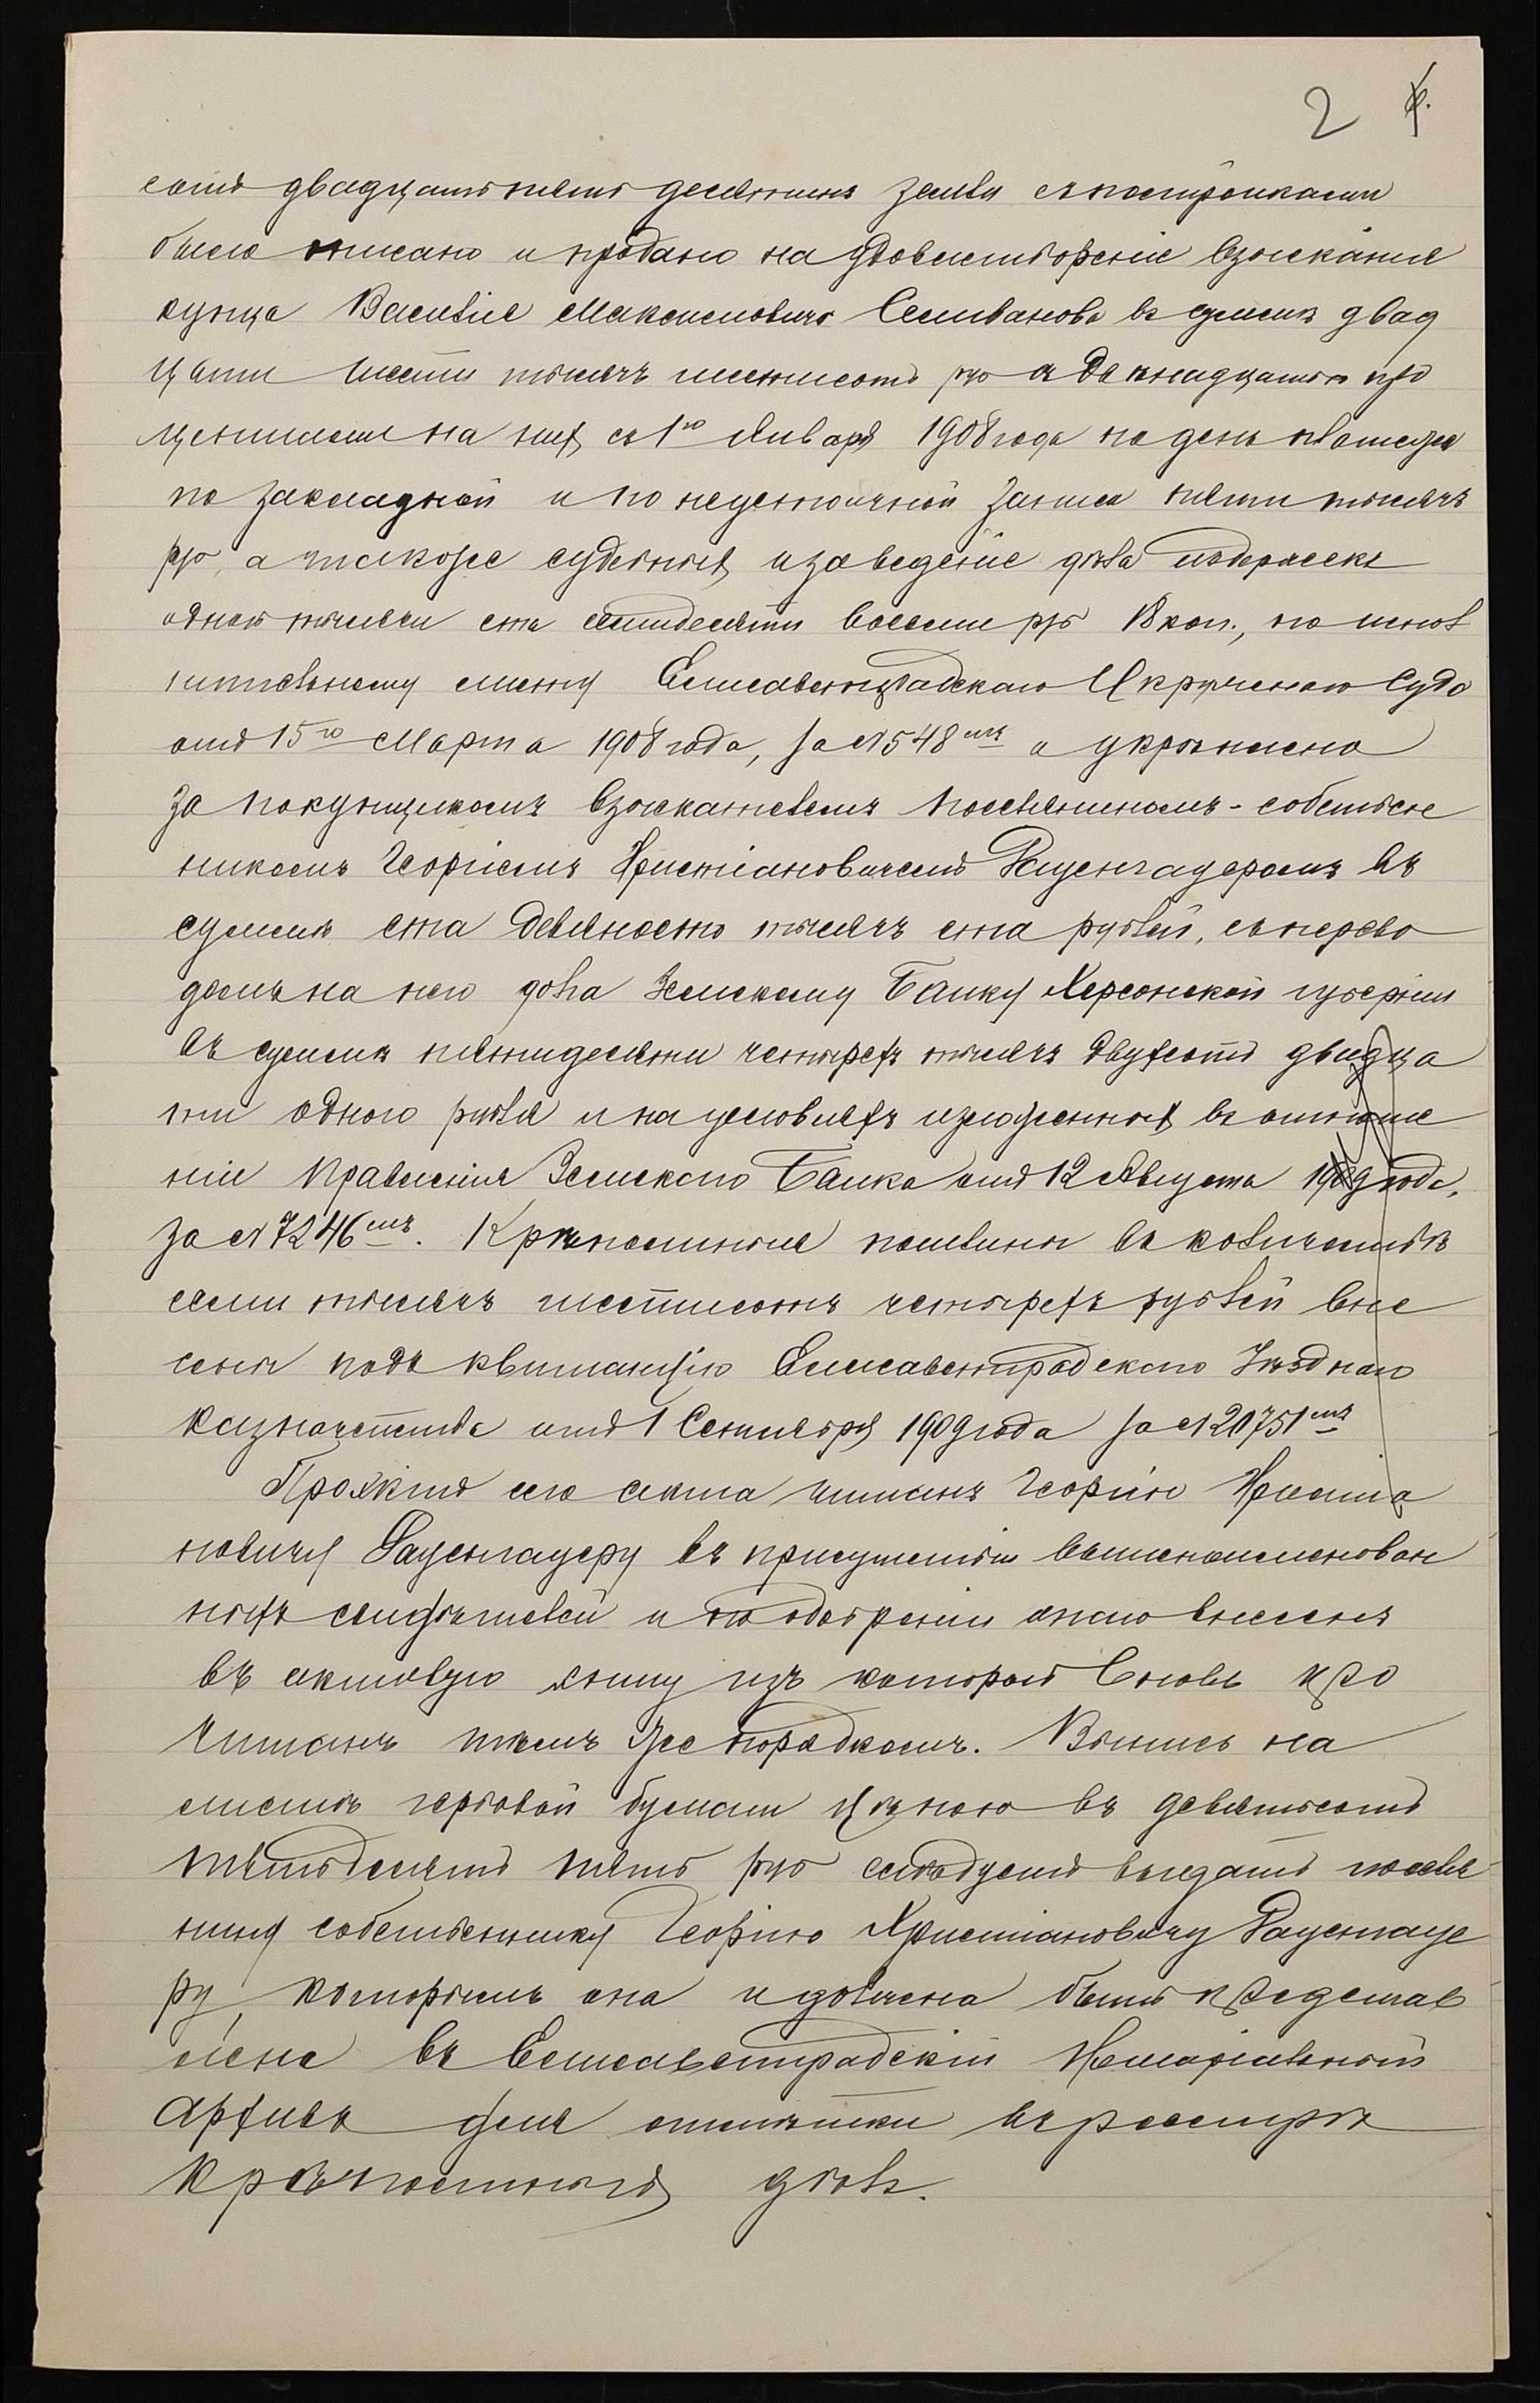 2
сотъ двадцать пять десятинъ земли съ постройками
было описано и продано на удовлетвореніе взысканія
купца Василія Максимовича Селиванова въ суммѣ двад
цати шести тысячъ шестисотъ руб съ двѣнадцатью про
центами на нихъ съ 1го Января 1908 года по день платежа
по закладной и по неустоичной записи пяти тысячъ
руб, а также судебныхъ и за веденіе дѣла издержекъ
одной тысячи ста семидесяти восьми руб 18 коп., по испол
нительному листу Елисаветградскаго Окружнаго Суда
отъ 15го Марта 1908 года, за № 1548мъ и укрѣплено
за покупщикомъ взыскателемъ поселяниномъ-собствен
никомъ Георгіемъ Христіановичемъ Рауенгауеромъ въ
суммѣ ста девяносто тысячъ ста рублей, съ перево
домъ на него долга Земскому Банку Херсонской губерніи
въ суммѣ пятидесяти четырехъ тысячъ двухсотъ двадца
ти одного рубля и на условіяхъ изложенныхъ въ отноше
ніи Правленія Земскаго Банка отъ 12 Августа 1909 года,
за № 7246мъ. Крѣпостныя пошлины въ количествѣ
семи тысячъ шестисотъ четырехъ рублей вне
сены подъ квитанцію Елисаветградскаго Уѣзднаго
Казначейства отъ 1 Сентября 1909 года за № 20751мъ
Проэктъ сего акта читанъ Георгію Христіа
новичу Рауенгауеру въ присутствіи вышепоименован
ныхъ свидѣтелей и по одобреніи онаго внесенъ
въ актовую книгу изъ которой вновь про
читанъ тѣмъ же порядкомъ. Выпись на
листѣ гербовой бумаги цѣною въ девятьсотъ
пятьдесятъ пять руб слѣдуетъ выдать поселя
нину собственнику Георгію Христіановичу Рауенгауе
ру, которымъ она и должна быть представ
лена въ Елисаветградскій Нотаріальный
Архивъ для отмѣтки въ реестрѣ
крѣпостныхъ дѣлъ.